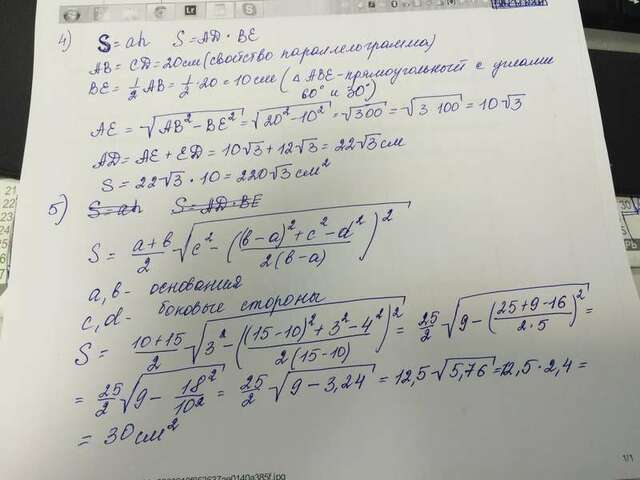 4) S = ah   S = AD · BE
AB = CD = 20 см (свойство параллелограмма)
BE = 1/2 AB = 1/2 · 20 = 10 см (△ ABE - прямоугольный с углами 60° и 30°)
AE = √(AB² - BE²) = √(20² - 10²) = √300 = √(3·100) = 10√3
AD = AE + ED = 10√3 + 12√3 = 22√3 см
S = 22√3 · 10 = 220√3 см²
5) S = ah   S = AD · BE
S = (a+b)/2 √(c² - (((b-a)² + c² - d²)/(2(b-a)))²)
a, b - основания
c, d - боковые стороны
S = (10+15)/2 √(3² - (((15-10)² + 3² - 4²)/(2(15-10)))²) = 25/2 √(9 - ((25+9-16)/(2·5))²) =
= 25/2 √(9 - 18²/10²) = 25/2 √(9 - 3,24) = 12,5 · √5,76 = 12,5 · 2,4 =
= 30 см²
1/1